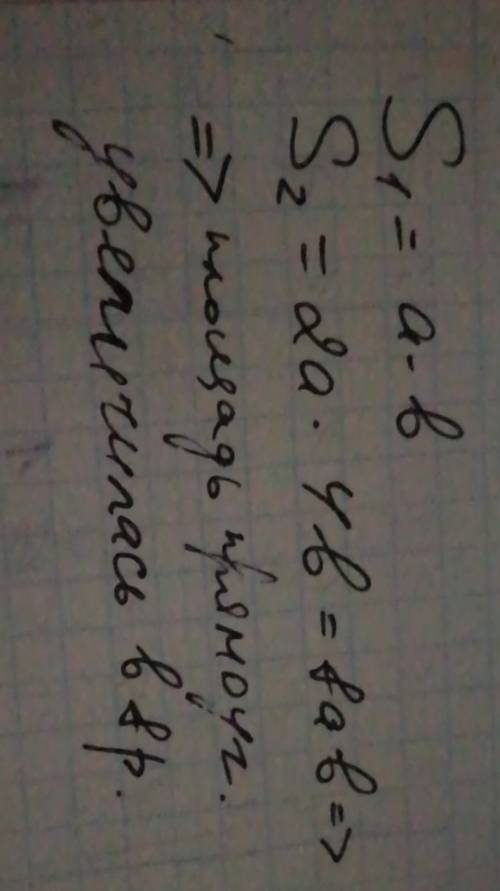 S₁ = a·b
S₂ = 2a·4b = 8ab =>
=> площадь прямоуг.
увеличилась в 8 р.